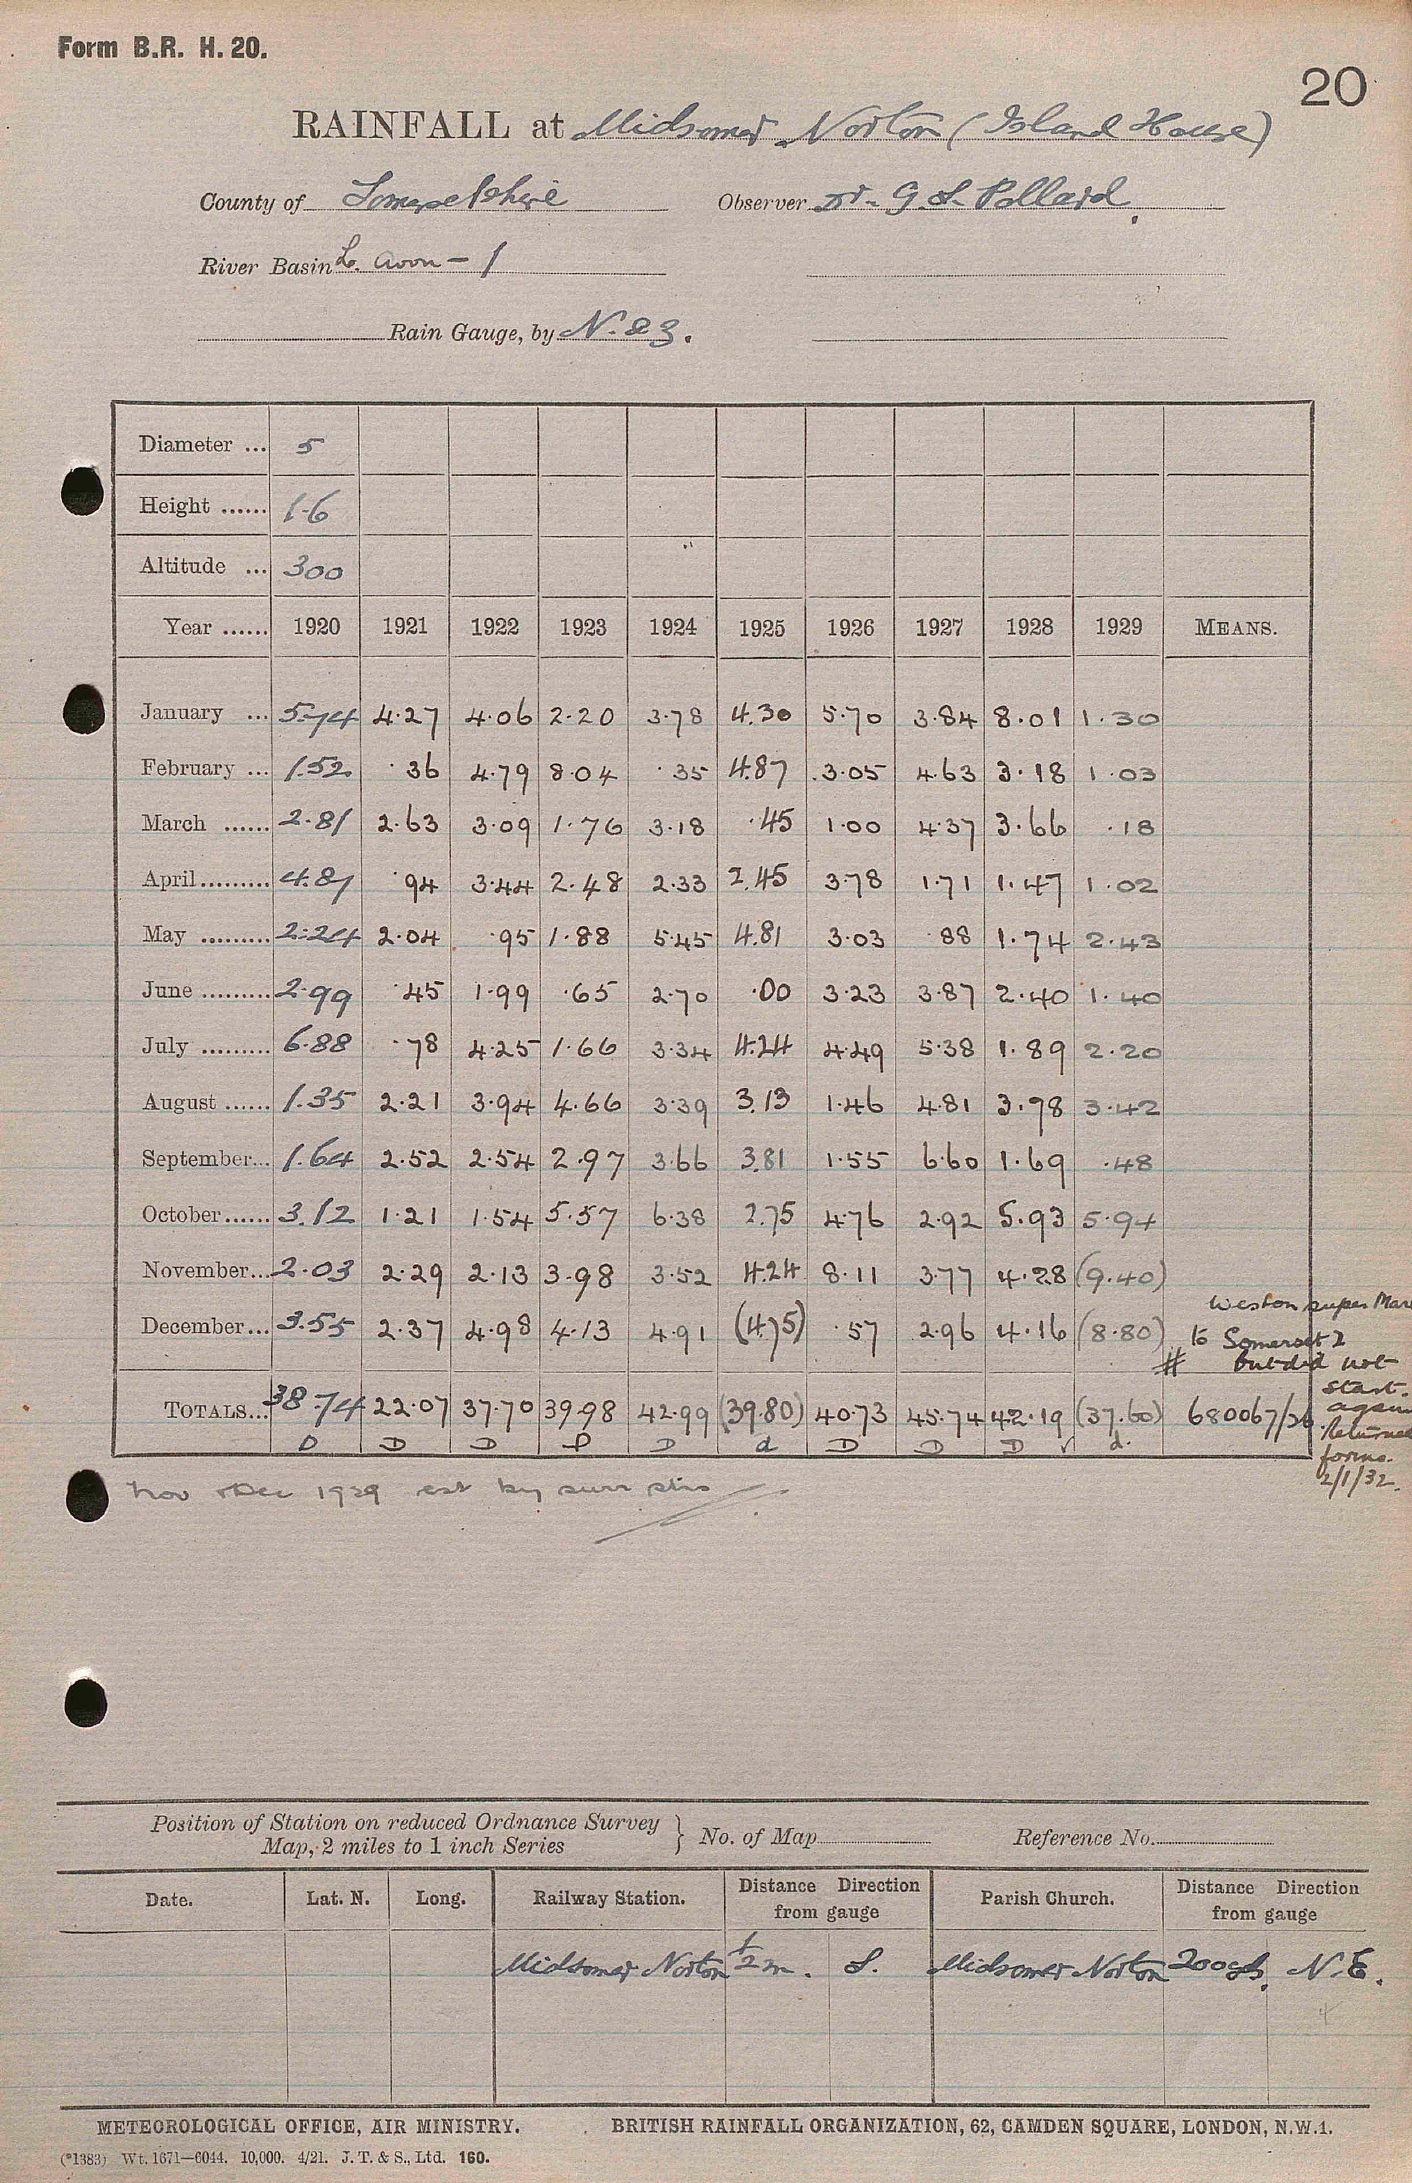 Form B.R. H. 20.
20
RAINFALL at Midsomer Norton (Island House)
County of Somersetshire Observer Dr. G. S. Pollard.
River Basin L. Avon - 1
Rain Gauge, by N. & Z.
Diameter ... 5
Height ...... 1.6
Altitude ... 300
Year ...... 1920 1921 1922 1923 1924 1925 1926 1927 1928 1929 MEANS.
January ... 5.74 4.27 4.06 2.20 3.78 4.30 5.70 3.84 8.01 1.30
February ... 1.52 .36 4.79 8.04 .35 4.87 3.05 4.63 3.18 1.03
March ...... 2.81 2.63 3.09 1.76 3.18 .45 1.00 4.37 3.66 .18
April......... 4.87 .94 3.44 2.48 2.33 2.45 3.78 1.71 1.47 1.02
May ......... 2.24 2.04 .95 1.88 5.45 4.81 3.03 .88 1.74 2.43
June ......... 2.99 .45 1.99 .65 2.70 .00 3.23 3.87 2.40 1.40
July ......... 6.88 .78 4.25 1.66 3.34 4.24 4.49 5.38 1.89 2.20
August ...... 1.35 2.21 3.94 4.66 3.39 3.13 1.46 4.81 3.78 3.42
September... 1.64 2.52 2.54 2.97 3.66 3.81 1.55 6.60 1.69 .48
October...... 3.12 1.21 1.54 5.57 6.38 2.75 4.76 2.92 5.93 5.94
November... 2.03 2.29 2.13 3.98 3.52 4.24 8.11 3.77 4.28 (9.40)
December... 3.55 2.37 4.98 4.13 4.91 (4.75) .57 2.96 4.16 (8.80)
Weston super Mare
to Somerset 2
# but did not
start
again
Returned
forms.
2/1/32.
TOTALS... 38.74 22.07 37.70 39.98 42.99 (39.80) 40.73 45.74 42.19 (37.60) 680067/26
D D D D D d D D D ✓ d.
Nov + Dec 1929 est by surr stns
Position of Station on reduced Ordnance Survey
Map, 2 miles to 1 inch Series } No. of Map Reference No.
Date. Lat. N. Long. Railway Station. Distance Direction from gauge Parish Church. Distance Direction from gauge
Midsomer Norton 1/2 m. S. Midsomer Norton 200 yds. N.E.
METEOROLOGICAL OFFICE, AIR MINISTRY. BRITISH RAINFALL ORGANIZATION, 62, CAMDEN SQUARE, LONDON, N.W.1.
(*1383) Wt. 1671—6044. 10,000. 4/21. J. T. & S., Ltd. 160.